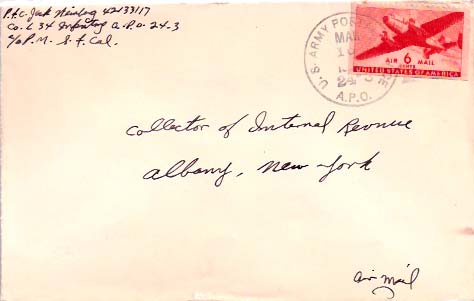 P.F.C. Jack Newberg 42133117
Co. L 34 Infantry A.P.O. 24-3
c/o P.M. S.F. Cal.
U.S. ARMY POSTAL
MAR
A.P.O.
AIR 6 MAIL
CENTS
UNITED STATES OF AMERICA
Collector of Internal Revnue
Albany, New York
Air Mail